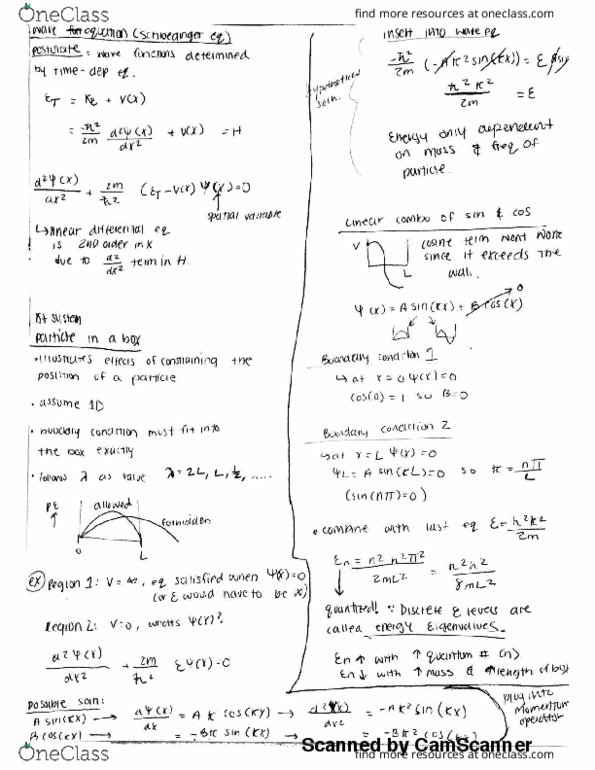 OneClass
find more resources at oneclass.com
wave equation (Schroedinger eq)
postulate: wave functions determined
by time-dep eq.
ET = KE + V(x)
= -ħ²/2m d²Ψ(x)/dx² + V(x) = H
d²Ψ(x)/dx² + 2m/ħ² (ET - V(x)) Ψ(x) = 0
spatial variable
↳ linear differential eq
is 2nd order in x
due to d²/dx² term in H.
1st system
particle in a box
• illustrates effects of constraining the
position of a particle
• assume 1D
• boundary condition must fit into
the box exactly
• follows λ as value λ = 2L, L, ½, .....
PE ↑
allowed
forbidden
0 L
(ex) Region 1: V = ∞, eq satisfied when Ψ(x)=0
(or E would have to be ∞)
Region 2: V=0, what's Ψ(x)?
d²Ψ(x)/dx² + 2m/ħ² EΨ(x)=0
possible soln:
A sin(kx) → dΨ(x)/dx = A k cos(kx) → d²Ψ(x)/dx² = -Ak² sin(kx)
B cos(kx) → = -Bk sin(kx) → = -Bk² cos(kx)
insert into wave eq
-ħ²/2m (-Ak² sin(kx)) = E
ħ²k²/2m = E
soln.
Energy only dependent
on mass & freq of
particle.
Linear combo of sin & cos
V L
cosine term won't work
since it exceeds the
wall.
Ψ(x) = A sin(kx) + B cos(kx) 0
Boundary condition 1
↳ at x=0 Ψ(x)=0
cos(0)=1 so B=0
Boundary condition 2
↳ at x=L Ψ(x)=0
ΨL = A sin(kL)=0 so k = nπ/L
(sin(nπ)=0)
• combine with last eq E = ħ²k²/2m
En = n²ħ²π²/2mL² = n²h²/8mL²
quantized! ∵ Discrete E levels are
called energy eigenvalues.
En ↑ with ↑ quantum # (n)
En ↓ with ↑ mass & ↑ length of box
plug into
momentum
operator
Scanned by CamScanner
OneClass
find more resources at oneclass.com